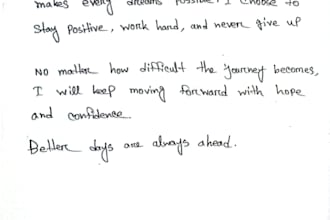 makes every dreams possible. I choose to
Stay Positive, work hard, and never give up
No matter how difficult the journey becomes,
I will keep moving forward with hope
and confidence
Better days are always ahead.